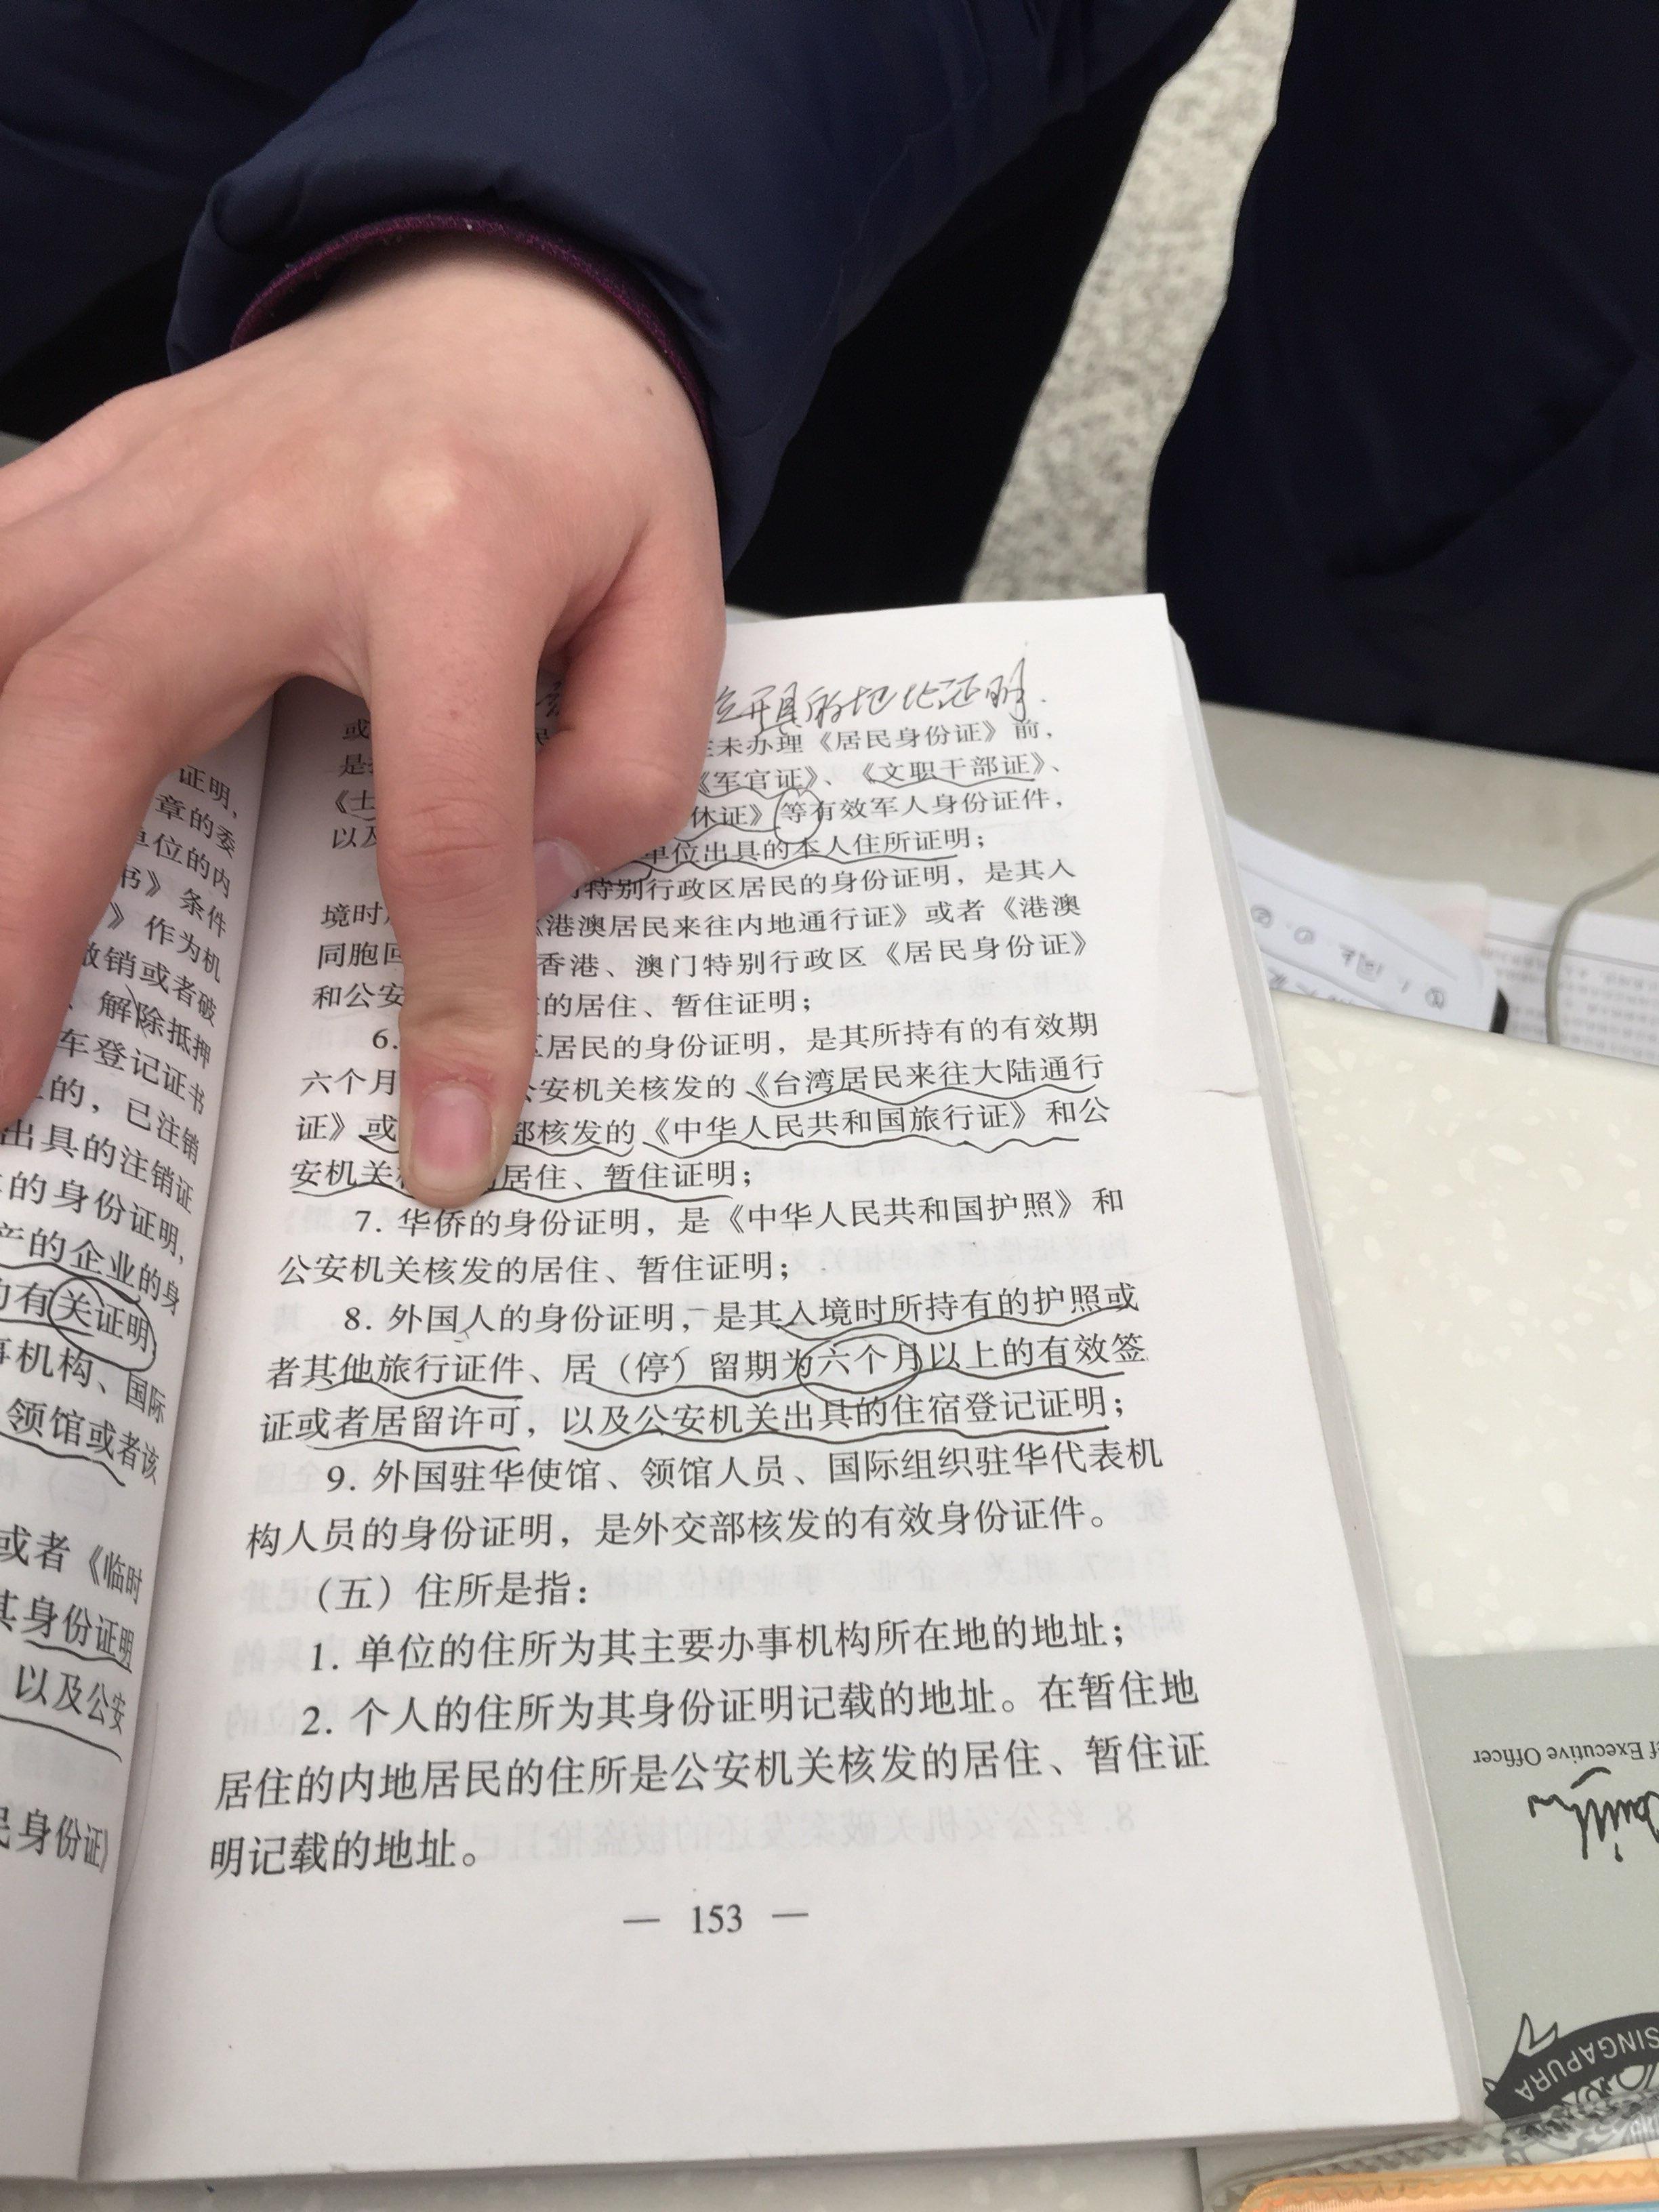 证明，
章的委
单位的内
书》条件
》作为机
撤销或者破
、解除抵押
车登记证书
的，已注销
出具的注销证
的身份证明，
产的企业的身
的有关证明
事机构、国际
领馆或者该
或者《临时
其身份证明
以及公安
民身份证》
开具的地址证明.
或
未办理《居民身份证》前，
是
《军官证》、《文职干部证》、
《士
休证》等有效军人身份证件，
以及
单位出具的本人住所证明；
特别行政区居民的身份证明，是其入
境时
《港澳居民来往内地通行证》或者《港澳
同胞回
香港、澳门特别行政区《居民身份证》
和公安
的居住、暂住证明；
6.
区居民的身份证明，是其所持有的有效期
六个月
公安机关核发的《台湾居民来往大陆通行
证》或
部核发的《中华人民共和国旅行证》和公
安机关
居住、暂住证明；
7. 华侨的身份证明，是《中华人民共和国护照》和
公安机关核发的居住、暂住证明；
8. 外国人的身份证明，是其入境时所持有的护照或
者其他旅行证件、居（停）留期为六个月以上的有效签
证或者居留许可，以及公安机关出具的住宿登记证明；
9. 外国驻华使馆、领馆人员、国际组织驻华代表机
构人员的身份证明，是外交部核发的有效身份证件。
（五）住所是指：
1. 单位的住所为其主要办事机构所在地的地址；
2. 个人的住所为其身份证明记载的地址。在暂住地
居住的内地居民的住所是公安机关核发的居住、暂住证
明记载的地址。
— 153 —
Executive Officer
SINGAPURA